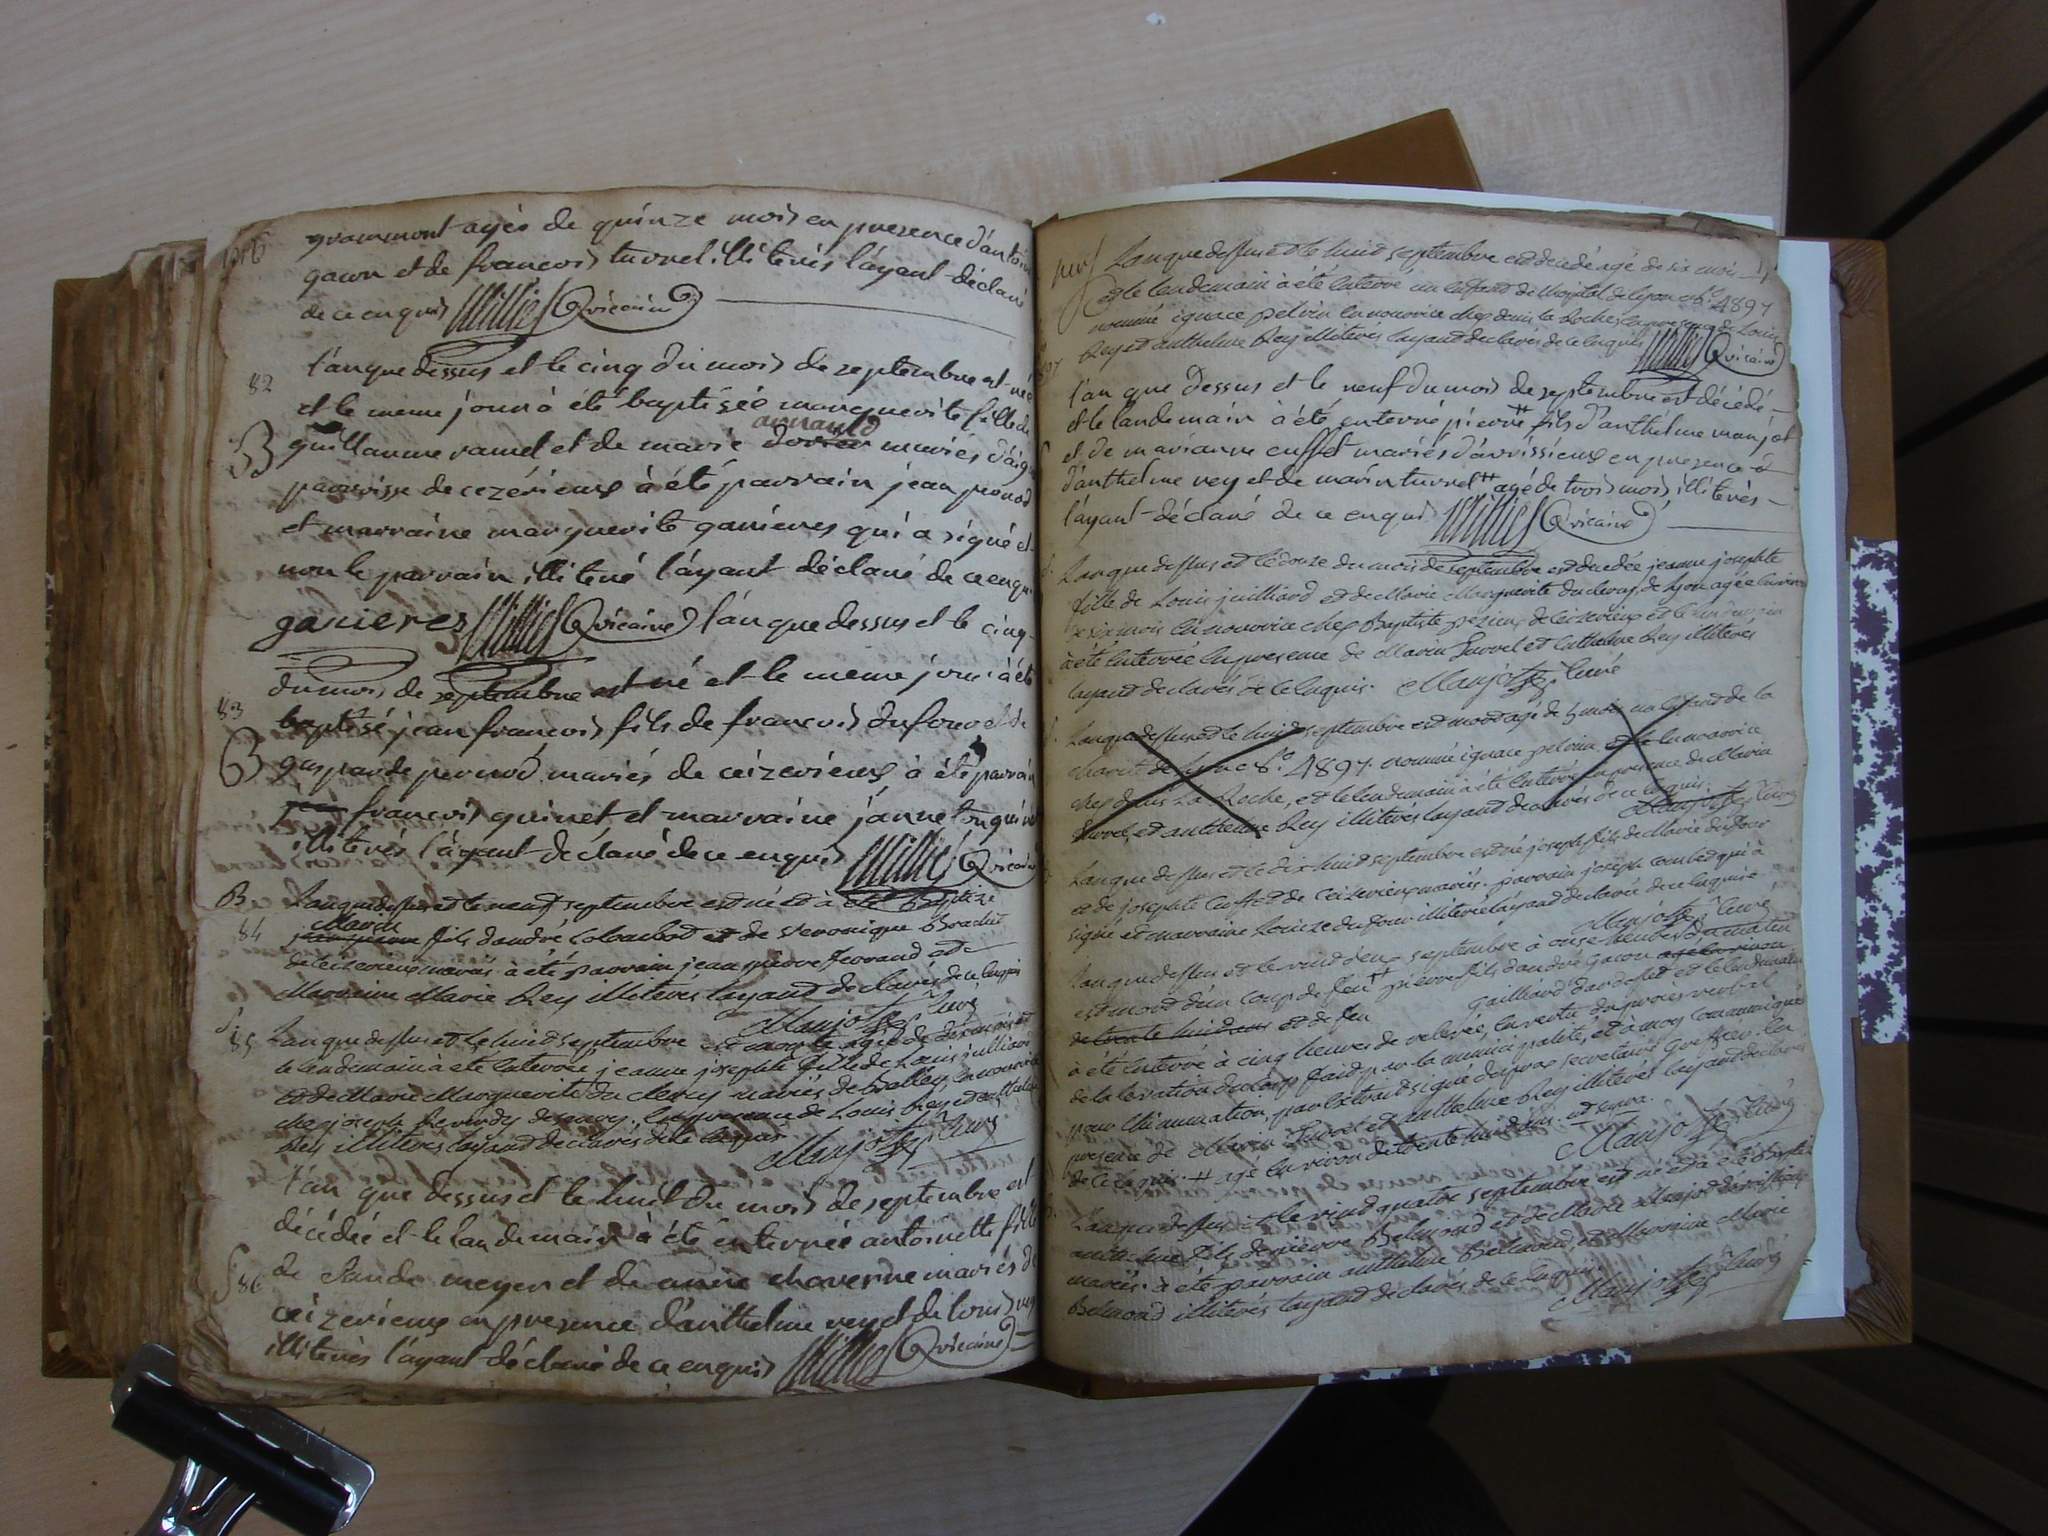 grammont agés de quinze mois en presence d'antoine
gacon et de francois turrel illiterés l'ayant déclaré
de ce enquis Millies vicaire
82
l'an que dessus et le cinq du mois de septembre est née
et le même jour à été baptisée marguerite fille de
B guillaume ramel et de marie arnauld mariés d'aig
parroisse de cezérieux à été parrain jean pernod
et marraine marguerite ganieres qui a signé et
non le parrain illiteré l'ayant déclaré de ce enquis
ganieres Millies vicaire l'an que dessus et le cinq
du mois de septembre est né et le meme jour à été
83
baptisé jean francois fils de francois dufour et de
B gasparde pernod mariés de ceizerieux à été parrain
francois quinet et marraine janne
illiterés l'ayant déclaré de ce enquis Millies vicaire
B L'an que dessus et le neuf septembre est né et à été Baptizé
84
Marin
jean pierre fils d'andré Colombet et de Veronique Brachet
de Ceizerieux mariés à été parrain jean pierre ferrand et
Marraine Marie Rey illiterés layand declarés de ce enquis
Manjot curé
S 85 L'an que dessus et le huit septembre est morte agée de six mois et
le lendemain à été enterrée jeanne josephte fille de Louis julliard
et de Marie Marguerite du clercy mariés de Belley en nourrice
chez joseph Reverdy de in presence de Louis Rey et anthelme
Rey illiterés layand declarés de ce enquis
Manjot curé
l'an que dessus et le huit du mois de septembre est
décédée et le landemain à été enterrée antoinette fille
S 86 de Claude meyer et de anne chaverne mariés de
ceizerieux en presence d'anthelme rey et de louis rey
illiterés l'ayant déclaré de ce enquis Millies vicaire
L'an que dessus et le huit septembre est decedé agé de six mois
et le lendemain à été enterré un enfant de l'hopital de lyon n° 4897
nommé ignace pelvin en nourrice chez denis la Roche en presence de Louis
Rey et anthelme Rey illiterés layant declarés de ce enquis Millies vicaire
l'an que dessus et le neuf du mois de septembre est décédé
et le landemain à été enterré pierre fils d'anthelme manjot
et de marianne cusset mariés d'avrissieux en presence
d'anthelme rey et de marin turrel agé de trois mois illiterés
l'ayant déclaré de ce enquis Millies vicaire
L'an que dessus et le douze du mois de septembre est decedée jeanne josephte
fille de Louis juilliard et de Marie Marguerite du clercy de lyon agée environ
de six mois en nourrice chez Baptiste pezieux de Ceizerieux et le lendemain
à été enterrée en presence de Marin Turrel et Anthelme Rey illiterés
layand declarés de ce enquis. Manjot curé
L'an que dessus et le huit septembre est mord agé de 5 mois un enfant de la
charité de Lyon n° 4897 nommé ignace pelvin en nourrice
chez denis La Roche, et le lendemain à été enterré en presence de Marin
Turrel, et anthelme Rey illiterés layand declarés de ce enquis.
Manjot curé
L'an que dessus et le dix huit septembre est né joseph fils de Marie du four
et de josephte Cusset de Ceizerieux mariés. parrain joseph combet qui à
signé et marraine Louise du four illiteré layand declarée de ce enquise
Manjot curé
L'an que dessus et le vind deux septembre à onze heures du matin
est mord d'un coup de feu pierre fils d'andré gacon agé environ
de trente huid ans et de feu gailliard dardosset et le lendemain
à été enterré à cinq heures de relevée, en vertu du procès verbal
de la levation du corps faid par la municipalité, et à moy communiqué
pour l'inhumation, par extrait signé despras secretaire Greffier. En
presence de Marin Turrel et anthelme Rey illiterés layand declarés
de ce enquis. agé environ de trente huid ans ut supra.
Manjot curé
L'an que dessus et le vind quatre septembre est né et à été Baptizé
anthelme fils de pierre Belmond et de Marie Manjot
mariés. à été parrain anthelme Belmond, et Marraine Marie
Belmond illiterés layand declarés de ce enquis.
Manjot curé